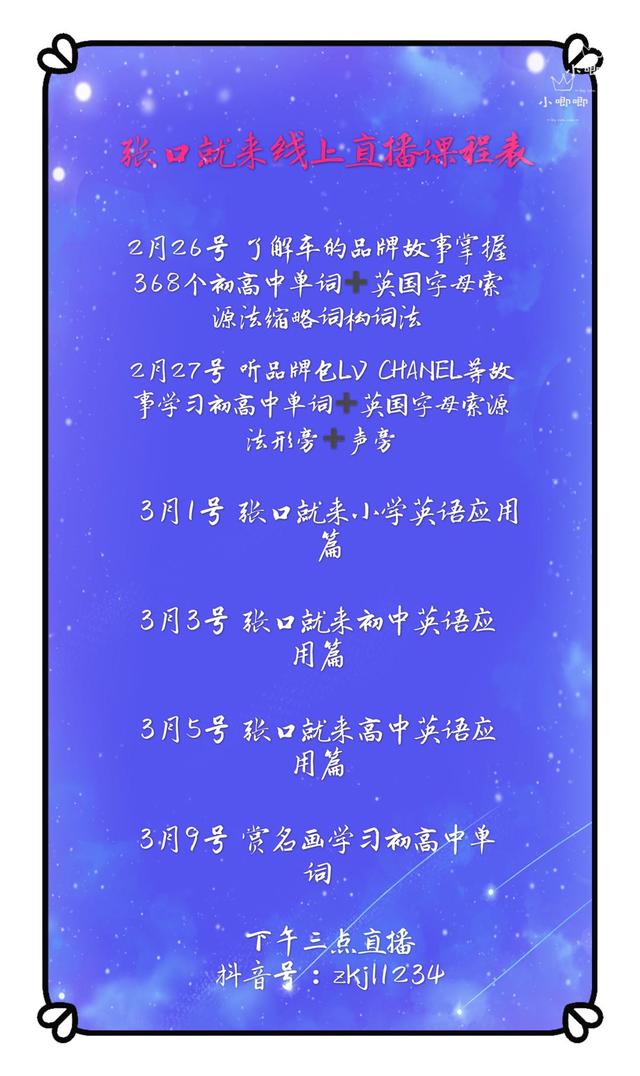 小唧
小唧唧
张口就来线上直播课程表
2月26号 了解车的品牌故事掌握
368个初高中单词➕英国字母索
源法缩略词构词法
2月27号 听品牌包LV CHANEL等故
事学习初高中单词➕英国字母索源
法形旁➕声旁
3月1号 张口就来小学英语应用
篇
3月3号 张口就来初中英语应
用篇
3月5号 张口就来高中英语应
用篇
3月9号 赏名画学习初高中单
词
下午三点直播
抖音号：zkjl1234